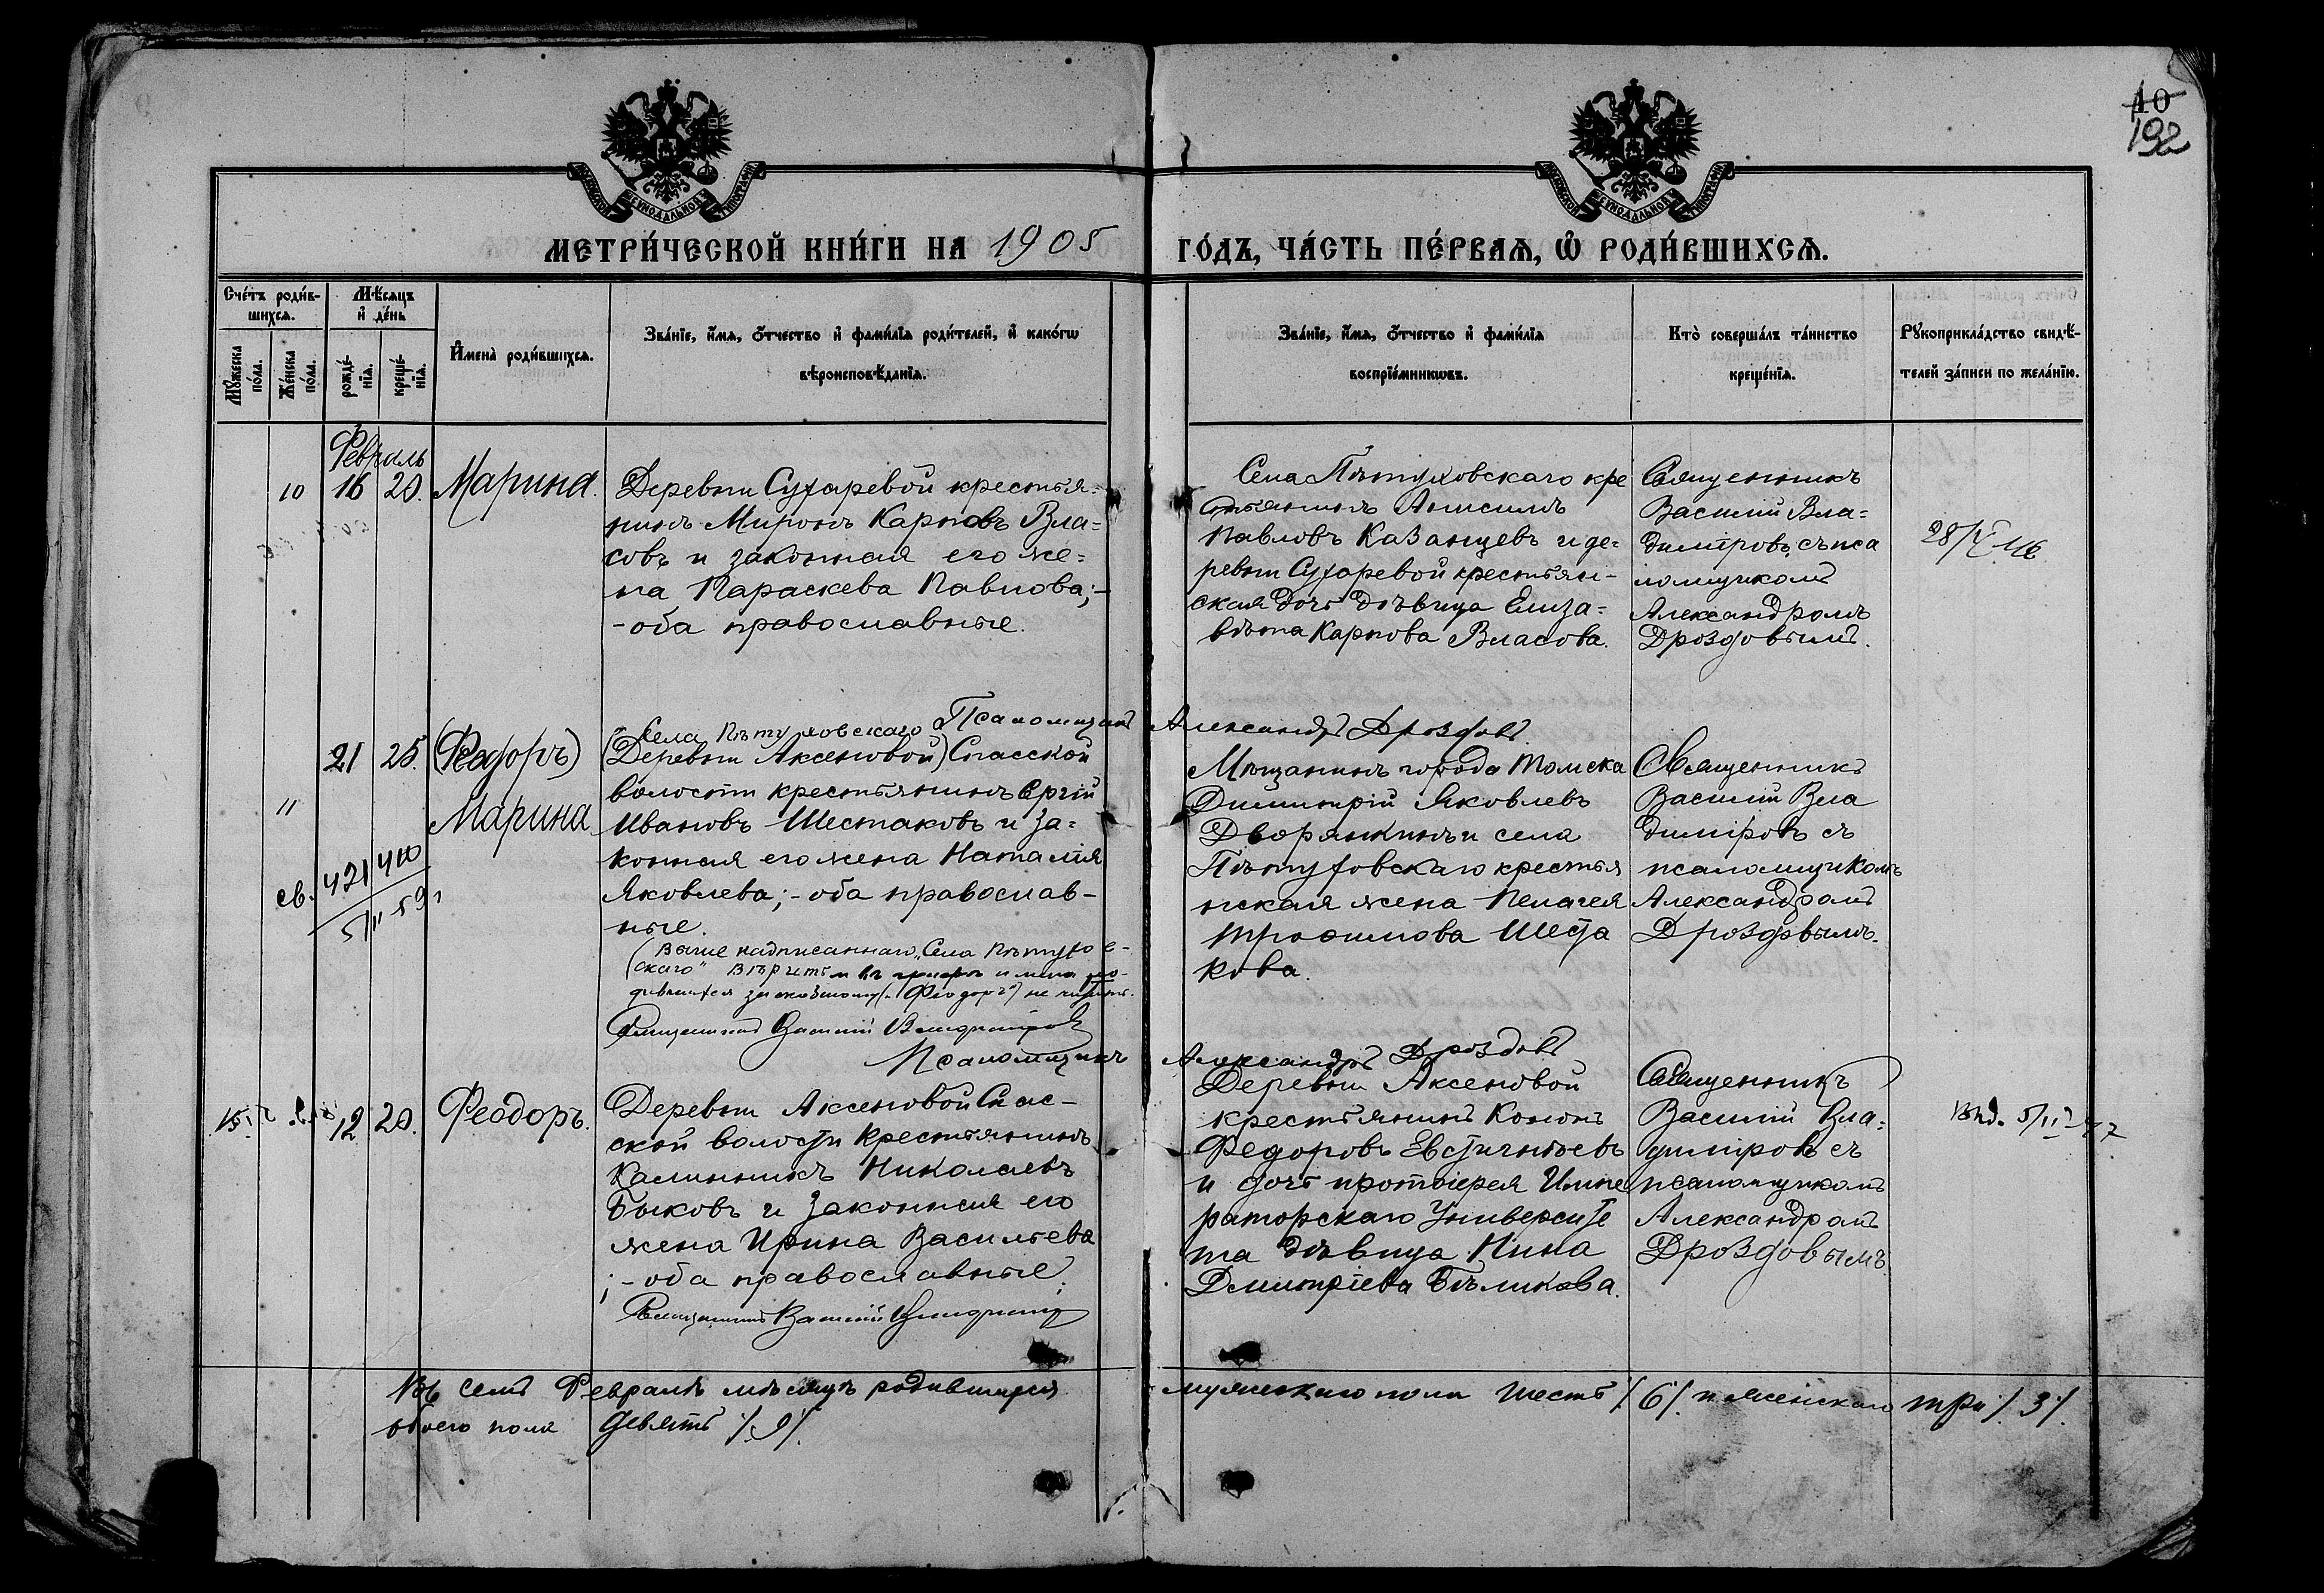 10
192
МЕТРИ́ЧЕСКОЙ КНИ́ГИ НА 1905
ГО́ДЪ, ЧА́СТЬ ПЕ́РВАѦ, Ѡ҆ РОДИ́ВШИХСѦ.
Сче́тъ роди́в-
шихсѧ.
Мѣ́сѧцъ
и҆ де́нь
Мꙋ́жеска
по́ла.
Же́нска
по́ла.
рожде́-
нїѧ.
креще́-
нїѧ.
И҆мена̀ роди́вшихсѧ.
Зва́нїе, и҆́мѧ, ѻ҆́тчество и҆ фами́лїѧ роди́телей, и҆ како́гѡ
вѣроисповѣ́данїѧ.
Зва́нїе, и҆́мѧ, ѻ҆́тчество и҆ фами́лїѧ
воспрїе́мникѡвъ.
Кто̀ соверша́лъ та́инство
креще́нїѧ.
Рꙋкоприкла́дство свидѣ́-
телей за́писи по жела́нїю.
Февраль
10 16 20. Марина.
Деревни Сухаревой крестья-
нинъ Миронъ Карповъ Вла=
совъ и законная его же=
на Параскева Павлова;-
-оба православные.
Села Пѣтуховскаго кре
стьянинъ Анисимъ
Павловъ Казанцевъ и де-
ревни Сухаревой крестьян-
ская дочь дѣвица Елиза=
вѣта Карпова Власова.
Священникъ
Василій Вла=
диміровъ съ пса
ломщикомъ
Александромъ
Дроздовымъ.
Села Пѣтуховскаго Псаломщикъ Александръ Дроздовъ
11 21 25. (Федоръ)
Марина
св. 421 400
(Деревни Аксеновой) Спасской
волости крестьянинъ Сергій
Ивановъ Шестаковъ и за=
конная его жена Наталія
Яковлева;-оба православ-
ные.
(Выше надписанному „Села Пѣтухов-
скаго" вѣрить
Священникъ Василій Владиміровъ
Псаломщикъ Александръ Дроздовъ
Мѣщанинъ города Томска
Димитрій Яковлевъ
Дворянкинъ и села
Пѣтуховскаго крестья
нская жена Пелагея
Трофимова Шеста
кова.
Священникъ
Василій Вла
диміровъ съ
псаломщикомъ
Александромъ
Дроздовымъ.
12 20. Феодоръ.
Деревни Аксеновой Спас-
ской волости крестьянинъ
Калинникъ Николаевъ
Быковъ и законная его
жена Ирина Васильева
;-оба православные.
Священникъ Василій Владиміровъ
Деревни Аксеновой
крестьянинъ Кононъ
Федоровъ Евстигнѣевъ
и дочь протоіерея Импе
раторскаго Университе
та дѣвица Нина
Дмитріева Бѣликова.
Священникъ
Василій Вла=
диміровъ съ
псаломщикомъ
Александромъ
Дроздовымъ.
Въ семъ Февралѣ мѣсяцѣ родившихся мужескаго пола шесть /6/. и женскаго три /.3/.
обоего пола девять /.9/.